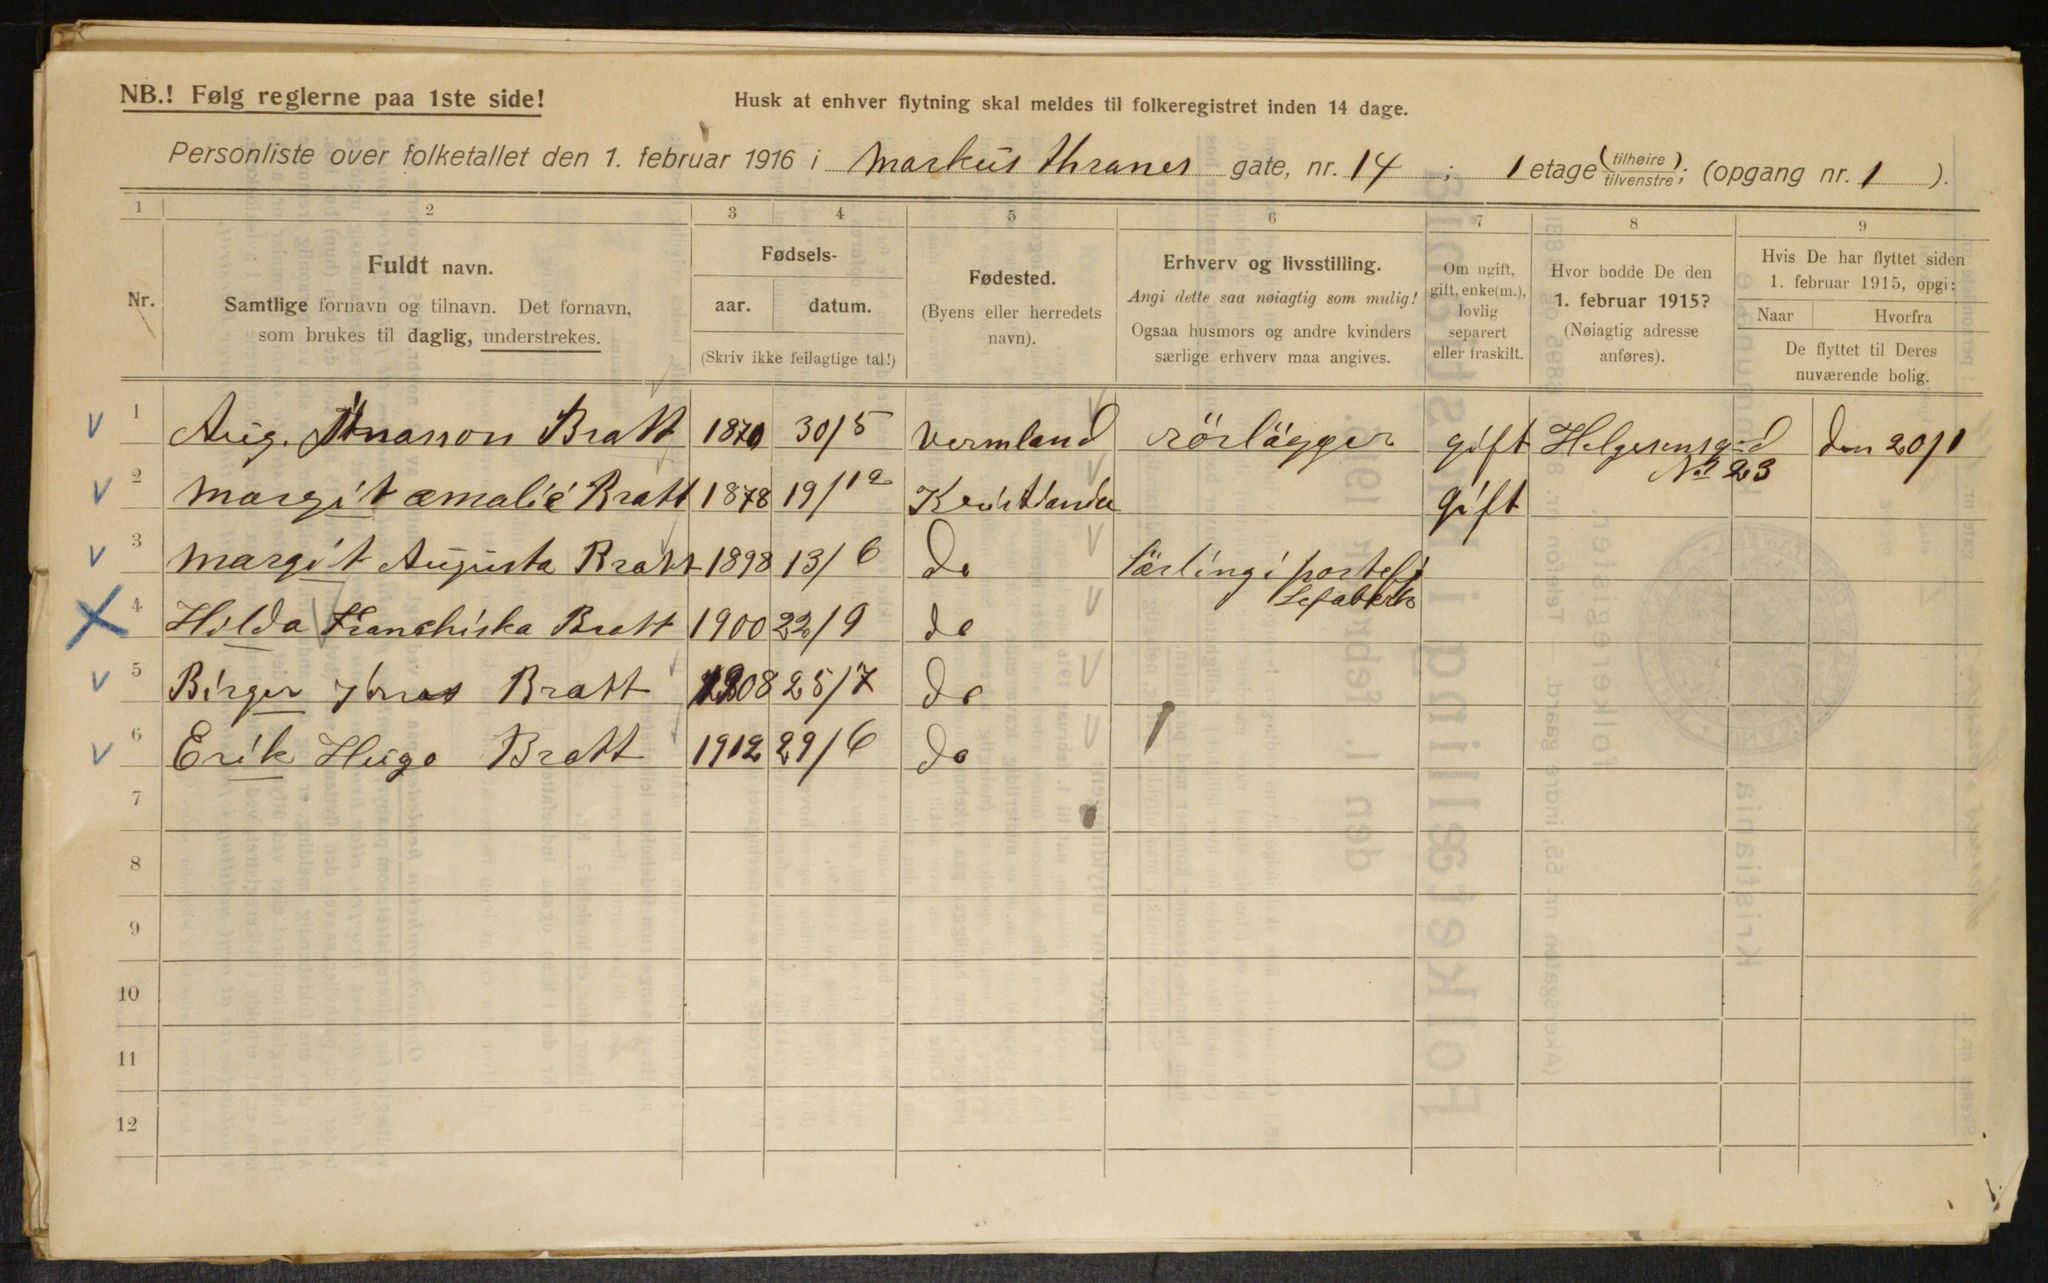 NB.! Følg reglerne paa 1ste side!
Husk at enhver flytning skal meldes til folkeregistret inden 14 dage.
Personliste over folketallet den 1. februar 1916 i Markus Thranes gate, nr. 14 ; 1 etage (tilhøire / tilvenstre); (opgang nr. 1 ).
1 2 3 4 5 6 7 8 9
Nr.
Fuldt navn.
Samtlige fornavn og tilnavn. Det fornavn,
som brukes til daglig, understrekes.
Fødsels-
aar. datum.
(Skriv ikke feilagtige tal!)
Fødested.
(Byens eller herredets
navn).
Erhverv og livsstilling.
Angi dette saa nøiagtig som mulig!
Ogsaa husmors og andre kvinders
særlige erhverv maa angives.
Om ugift,
gift, enke(m.),
lovlig
separert
eller fraskilt.
Hvor bodde De den
1. februar 1915?
(Nøiagtig adresse
anføres).
Hvis De har flyttet siden
1. februar 1915, opgi:
Naar Hvorfra
De flyttet til Deres
nuværende bolig.
1 Aug. Jonasson Bratt 1870 30/5 Vermland rörlägger gift Helgesensgd den 20/1
No 23
2 Margit Amalie Bratt 1878 19/12 Kristiania gift
3 Margit Augusta Bratt 1898 13/6 do Lärling i
4 Hilda Franchiska Bratt 1900 22/9 do
5 Birger Jonas Bratt 1908 25/7 do
6 Erik Hugo Bratt 1912 29/6 do
7
8
9
10
11
12